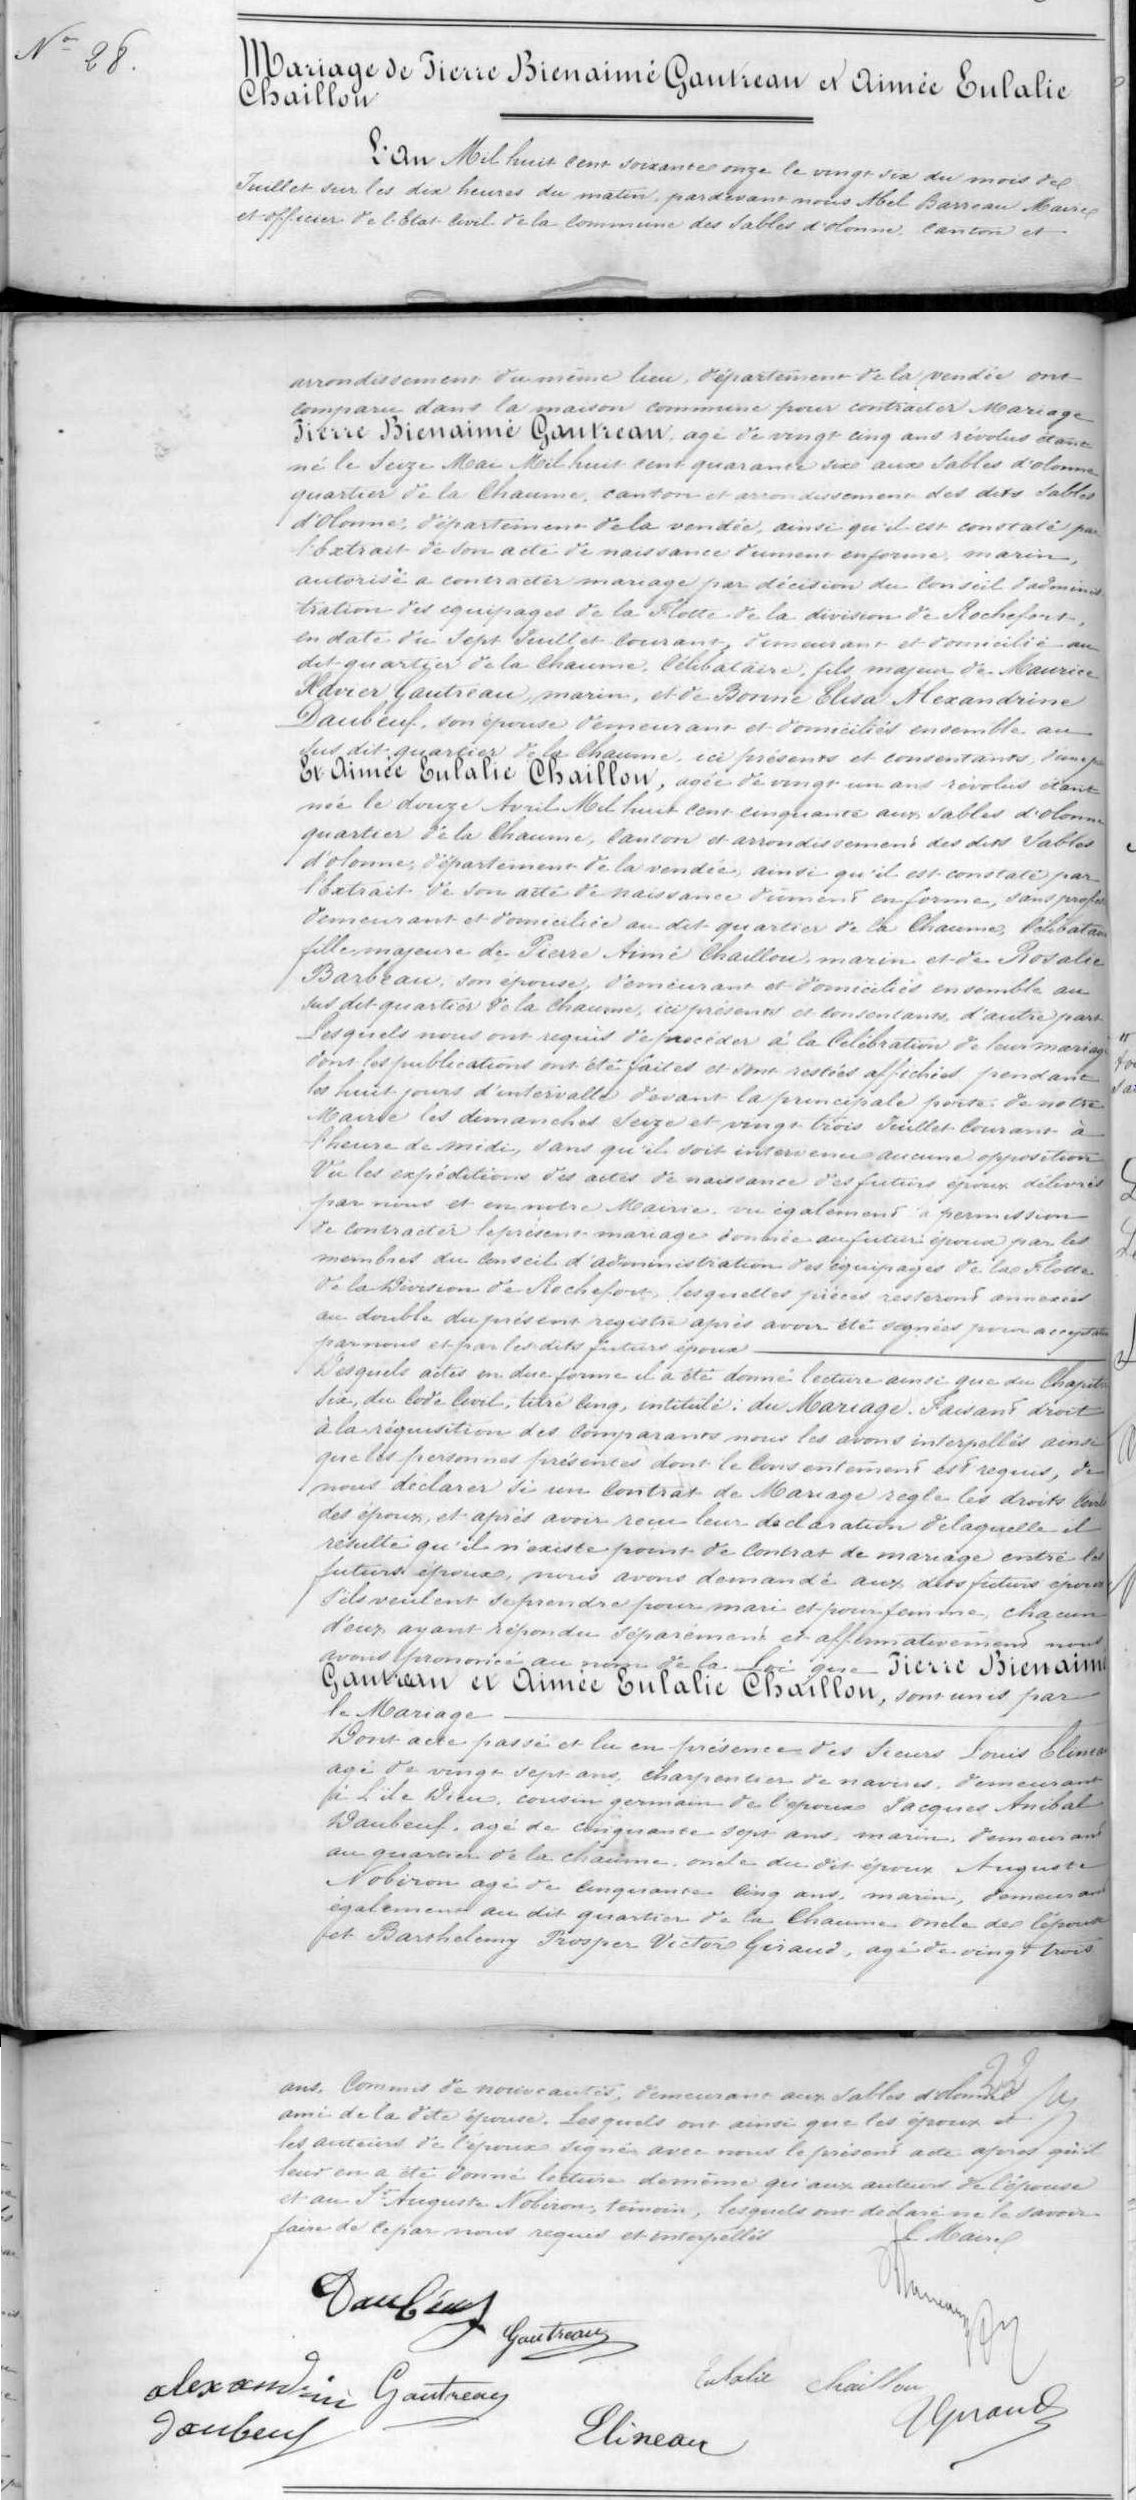 No 28.
Mariage de Pierre Bienaimé Gautreau et Aimée Eulalie
Chaillou
L'an Mil huit cent soixante onze le vingt six du mois de
Juillet sur les dix heures du matin, pardevant nous Abel Barreau Maire
et officier de l'Etat Civil de la Commune des Sables d'olonne, Canton et
arrondissement du même lieu, département de la vendée ont
comparu dans la maison commune pour contracter Mariage
Pierre Bienaimé Gautreau, agé de vingt cinq ans révolus étant
né le Seize Mai Mil huit cent quarante six aux Sables d'olonne
quartier de la Chaume, canton et arrondissement des dits Sables
d'Olonne, département de la vendée, ainsi qu'il est constaté par
l'Extrait de son acte de naissance dument enforme, marin,
autorisé a contracter mariage par décision du Conseil d'adminis
tration des equipages de la Flotte de la division de Rochefort,
en date du Sept Juillet Courant, demeurant et domicilié au
dit quartier de la Chaume, Célibataire, fils majeur de Maurice
Xavier Gautreau, marin, et de Bonne Elisa Alexandrine
Daubeuf, son épouse demeurant et domiciliés ensemble au
sus dit quartier de la Chaume, ici présents et consentants, d'une p
Et Aimée Eulalie Chaillou, agée de vingt un ans révolus étant
née le douze Avril Mil huit cent cinquante aux Sables d'olonne
quartier de la Chaume, Canton et arrondissement des dits Sables
d'olonne, département de la vendée, ainsi qu'il est constaté par
l'Extrait de son acte de naissance dûment enforme, sans profes
demeurant et domiciliée au dit quartier de la Chaume, Célibataire
fille majeure de Pierre Aimé Chaillou, marin et de Rosalie
Barbeau, son épouse, demeurant et domiciliés ensemble au
sus dit quartier de la Chaume, ici présents et consentants, d'autre part
Lesquels nous ont requis de procéder à la Célébration de leur mariage
dont les publications ont été faites et sont restées affichées pendant
les huit jours d'intervalle devant la principale porte de notre
Mairie les dimanches Seize et vingt trois Juillet Courant à
l'heure de midi, sans qu'il soit intervenu aucune opposition
Vu les expéditions des actes de naissance des futurs époux délivrés
par nous et en notre Mairie, vu également a permission
de contracter le présent mariage donnée au futur époux par les
membres du Conseil d'administration des équipages de la Flotte
de la Division de Rochefort, lesquelles pièces resteront annexées
au double du présent registre après avoir été signées pour acceptation
par nous et par les dits futurs époux
Desquels actes en due forme il a été donné lecture ainsi que du Chapitre
Six, du Code Civil, titre Cinq, intitulé: du Mariage. Faisant droit
à la réquisition des Comparants nous les avons interpellés ainsi
que les personnes présentes dont le Consentement est requis, de
nous déclarer si un Contrat de Mariage regle les droits Civils
des époux, et après avoir recu leur declaration delaquelle il
résulte qu'il n'existe point de Contrat de mariage entre les
futurs époux, nous avons demandé aux dits futurs époux
s'ils veulent se prendre pour mari et pour femme, chacun
d'eux ayant répondu séparément et affirmativement nous
avons prononcé au nom de la Loi que Pierre Bienaimé
Gautreau et Aimée Eulalie Chaillou, sont unis par
le Mariage
Dont acte passé et lu en présence des Sieurs Louis Elineau
agé de vingt sept ans, charpentier de navires, demeurant
à L'île Dieu, cousin germain de l'époux Jacques Anibal
Daubeuf, agé de cinquante sept ans, marin, demeurant
au quartier de la chaume, oncle du dit époux Auguste
Nobiron agé de cinquante Cinq ans, marin, demeurant
également au dit quartier de la Chaume oncle de l'époux
et Barthelemy Prosper Victor Giraud, agé de vingt trois
22
ans, Commis de nouveautés, demeurant aux Sables d'olonne
ami de la dite épouse. Lesquels ont ainsi que les époux et
les auteurs de l'époux signés avec nous le présent acte apres qu'il
leur en a été donné lecture demême qu'aux auteurs de l'épouse
et au Sr Auguste Nobiron, témoin, lesquels ont declaré ne le savoir
faire de ce par nous requis et interpellés
Le Maire
Daubeuf
Gautreau
Barreau
alexandrine Gautreau
Eulalie Chaillou
daubeuf
Elineau
VGiraud